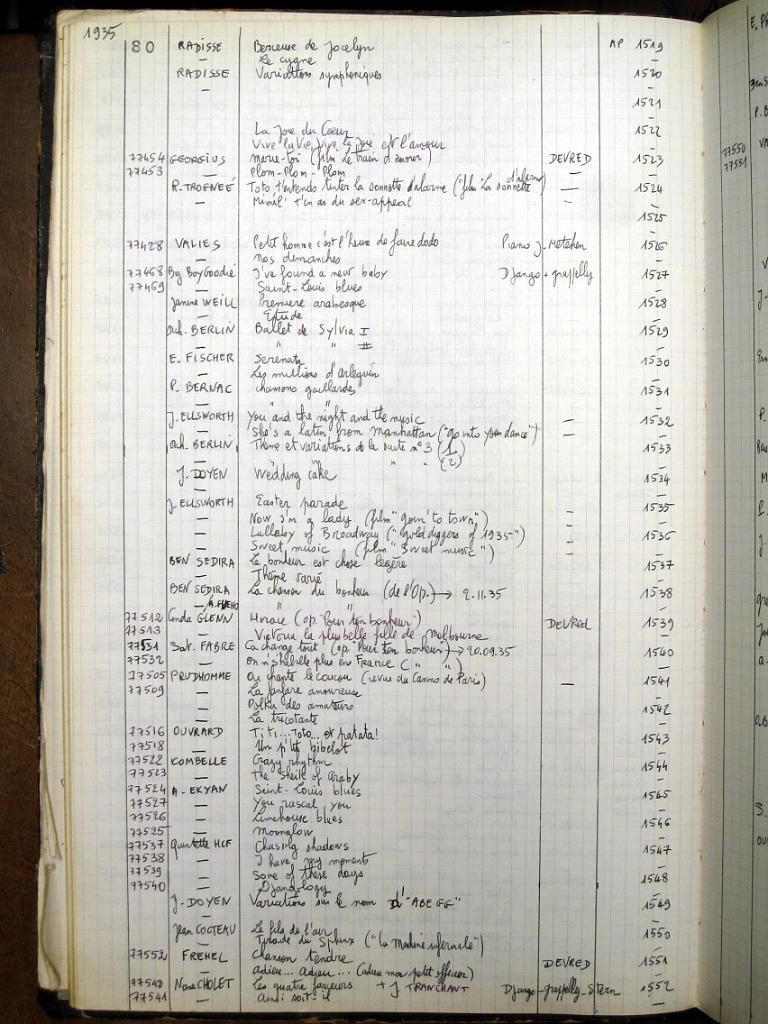 1935
80 RADISSE Berceuse de Jocelyn AP 1519
— Le cygne —
RADISSE Variations symphoniques 1520
— —
1521
—
La Joie du Coeur 1522
Vive la Vie, Vive la Joie est l'amour —
77454 GEORGIUS Marie-toi (film Le train d'amour) DEVRED 1523
77453 — Plom-Plom-Plom —
R. TROGNEÉ Toto t'entends tinter la sonnette d'alarme ("film "La sonnette d'alarme") — 1524
— Mimil' t'en as du sex-appeal — —
1525
—
77428 VALIES Petit homme c'est l'heure de faire dodo Piano J. Metehen 1526
— Nos dimanches —
77468 Big Boy Goodie I've found a new baby Django + grappelly 1527
77469 — Saint-Louis blues —
Janine WEILL Première arabesque 1528
— Etude —
Orch. BERLIN Ballet de Sylvia I 1529
— " " II —
E. FISCHER Serenata 1530
— Les millions d'arlequin —
P. BERNAC Chansons gaillardes 1531
— " —
J. ELLSWORTH You and the night and the music — 1532
— She's a latin from manhattan ("go into your dance") — —
Orch. BERLIN Thème et variations de la suite n°3 (1) 1533
— " " " (2) —
J. DOYEN Wedding cake 1534
— —
J. ELLSWORTH Easter parade 1535
— Now I'm a lady (film "goin' to town") — —
— Lullaby of Broadway ("gold diggers of 1935") — 1536
— Sweet music (film "Sweet music") — —
BEN SEDIRA Le bonheur est chose légère 1537
— Thème varié —
BEN SEDIRA La chanson du bonheur (de l'Op.) → 2.11.35 1538
— " —
77512 Conda GLENN Horace (op. "Pour ton bonheur") DEVRED 1539
77513 — Victoria la plus belle fille de Melbourne —
77531 Sat. FABRE Ca change tout (op. "Pour ton bonheur) → 20.09.35 1540
77532 — On n's'habille plus en France ( " " ) —
77505 PRUDHOMME Ou chante le coucou (revue du Casino de Paris) — 1541
77509 — La fanfare amoureuse —
Polka des amateurs 1542
La tricotante —
77516 OUVRARD Titi... Toto... et patata! 1543
77518 — Un p'tit bibelot —
77522 KOMBELLE Crazy rhythm 1544
77523 — The Sheik of Araby —
77524 A. EKYAN Saint-Louis blues 1545
77527 — You rascal, you —
77526 — Limehouse blues 1546
77525 — Moonglow —
77537 Quintette HCF Chasing shadows 1547
77538 — I have my moments —
77539 — Some of these days 1548
77540 — Djangology —
J. DOYEN Variations sur le nom d'"ABEGG" 1549
— —
Jean COCTEAU Le fils de l'air 1550
— Tirade du Sphinx ("la machine infernale") —
77552 FREHEL Chanson tendre DEVRED 1551
— Adieu... adieu... (adieu mon petit officier) —
77542 Nane CHOLET Les quatre farceurs + J TRANCHANT Django-grappelly-Stern 1552
77541 — Ainsi soit-il —
77550
77551